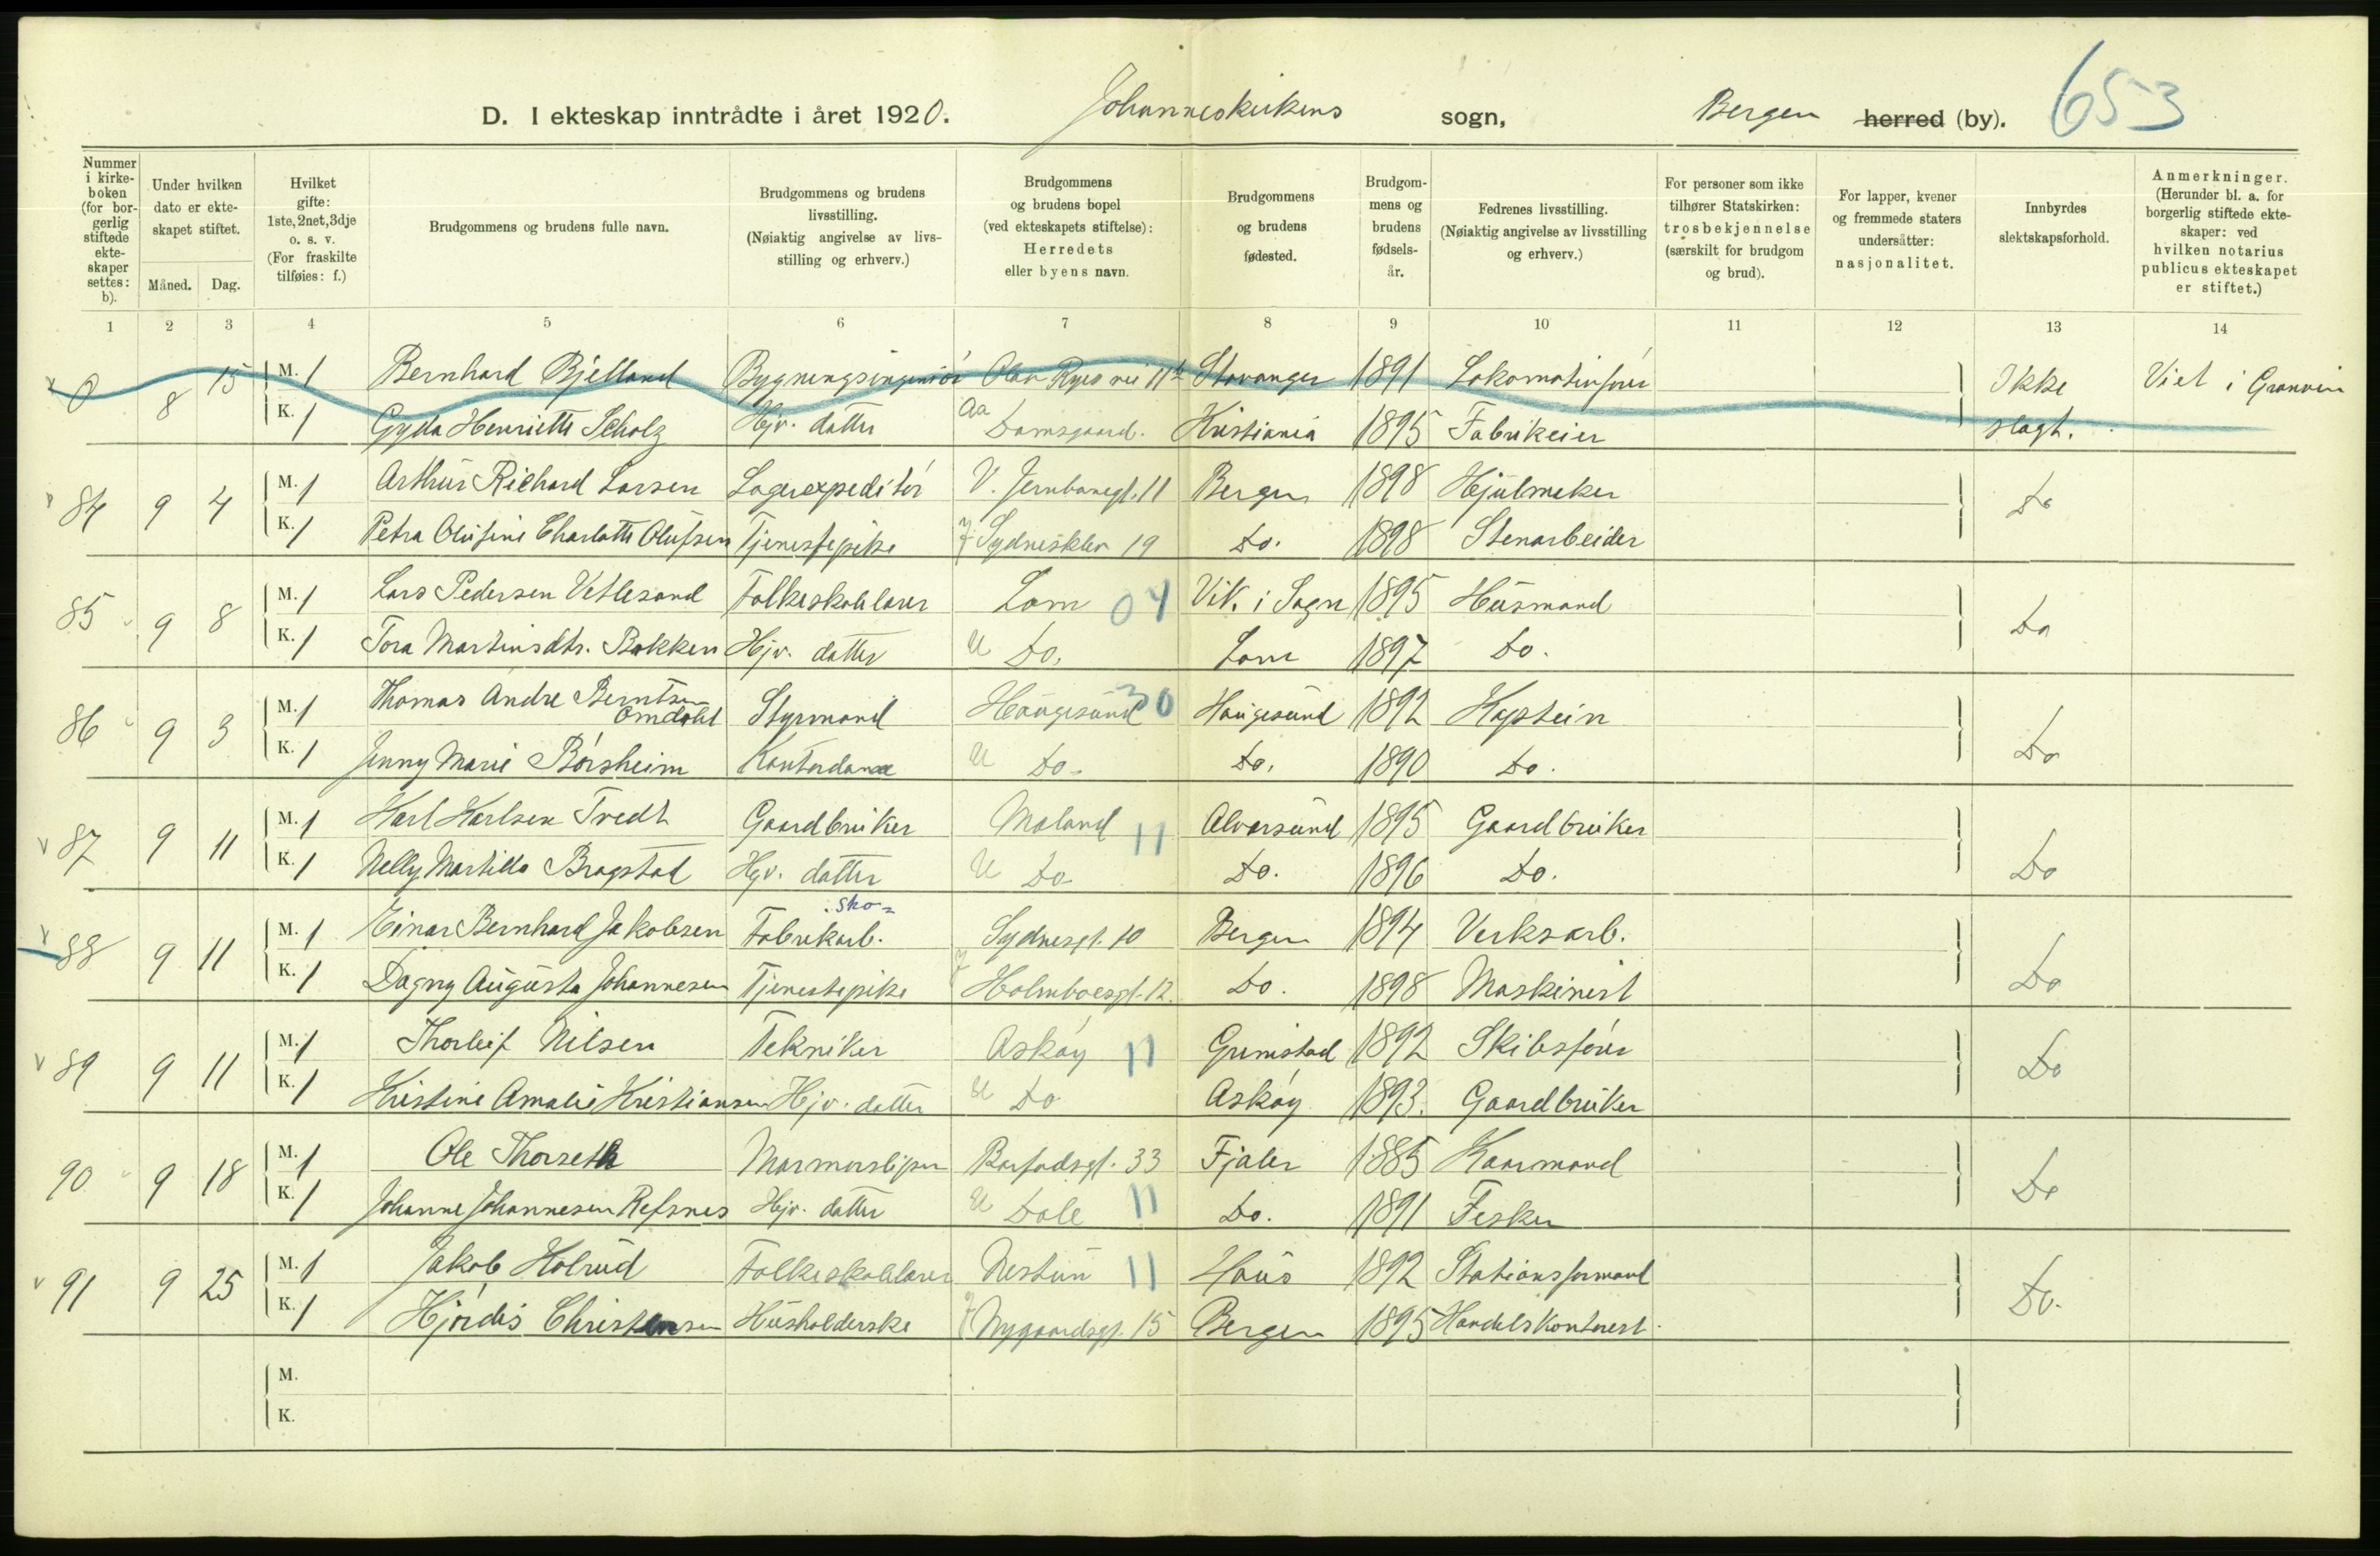 653
D. I ekteskap inntrådte i året 1920. Johanneskirkens sogn, Bergen herred (by).
Nummer i kirke-boken (for bor-gerlig stiftede ekte-skaper settes: b).
Under hvilken dato er ekte-skapet stiftet.
Måned. Dag.
Hvilket gifte: 1ste, 2net, 3dje o. s. v. (For fraskilte tilføies: f.)
Brudgommens og brudens fulle navn.
Brudgommens og brudens livsstilling. (Nøiaktig angivelse av livs-stilling og erhverv.)
Brudgommens og brudens bopel (ved ekteskapets stiftelse): Herredets eller byens navn.
Brudgommens og brudens fødested.
Brudgom-mens og brudens fødsels-år.
Fedrenes livsstilling. (Nøiaktig angivelse av livsstilling og erhverv.)
For personer som ikke tilhører Statskirken: trosbekjennelse (særskilt for brudgom og brud).
For lapper, kvener og fremmede staters undersåtter: nasjonalitet.
Innbyrdes slektskapsforhold.
Anmerkninger. (Herunder bl. a. for borgerlig stiftede ekte-skaper: ved hvilken notarius publicus ekteskapet er stiftet.)
1 2 3 4 5 6 7 8 9 10 11 12 13 14
0 8 15 M. 1 Bernhard Bjelland Bygningsingeniør Olav Ryes vei 11b Stavanger 1891 Lokomotivfører Ikke Viet i Granvin
K. 1 Gyda Henriette Scholz Hjv. datter Aa Damsgaard. Kristiania 1895 Fabrikeier slagt.
84 9 4 M. 1 Arthur Richard Larsen Lagerexpeditør V. Jernbanegt. 11 Bergen 1898 Hjulmaker Do
K. 1 Petra Olufine Charlotte Olufsen Tjenestepike Sydnesklev 19 Do. 1898 Stenarbeider
85 9 8 M. 1 Lars Pedersen Vetlesand Folkeskolelærer Lom 04 Vik. i Sogn 1895 Husmand Do
K. 1 Tora Martinsdtr. Bakken Hjv. datter U Do. Lom 1897 Do.
86 9 3 M. 1 Thomas Andre Berntsen Omdahl Styrmand Haugesund 30 Haugesund 1892 Kaptein Do
K. 1 Jenny Marie Børsheim Kontordame U Do. Do. 1890 Do.
87 9 11 M. 1 Karl Karlsen Tvedt Gaardbruker Moland 11 Alversund 1895 Gaardbruker Do
K. 1 Nelly Martilla Bragstad Hjv. datter U Do Do. 1896 Do.
88 9 11 M. 1 Einar Bernhard Jakobsen sko- Fabrikarb. Sydnesgt. 10 Bergen 1894 Verksarb. Do
K. 1 Dagny Augusta Johannesen Tjenestepike Holmboesgt. 12. Do. 1898 Maskinist
89 9 11 M. 1 Thorleif Nilsen Tekniker Askøy 11 Grimstad 1892 Skibsfører Do
K. 1 Kristine Amalie Kristiansen Hjv. datter U Do Askøy 1893. Gaardbruker
90 9 18 M. 1 Ole Thorseth Marmorsliper Baglergt. 33 Fjaler 1885 Kaarmand Do
K. 1 Johanne Johannesen Refsnes Hjv. datter U Dale 11 Do. 1891 Fisker
91 9 25 M. 1 Jakob Holrud Folkeskolelærer Nestun 11 Haus 1892 Stationsformand Do.
K. 1 Hjørdis Christensen Husholderske Nygaardsgt. 15 Bergen 1895 Handelskontorist.
M.
K.